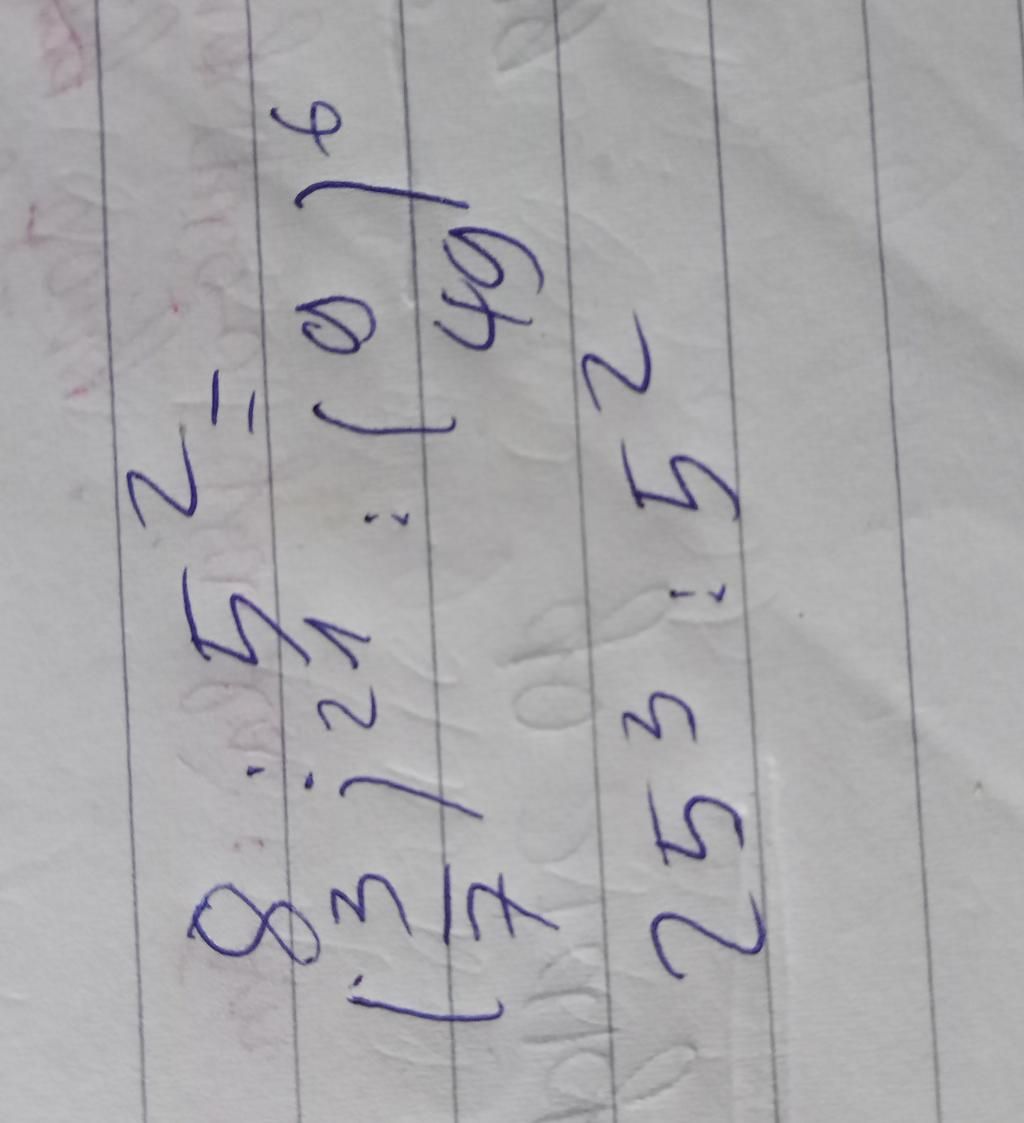 8 : 5² =
(3/7)²¹ : (9/49)⁶
25³ : 5²